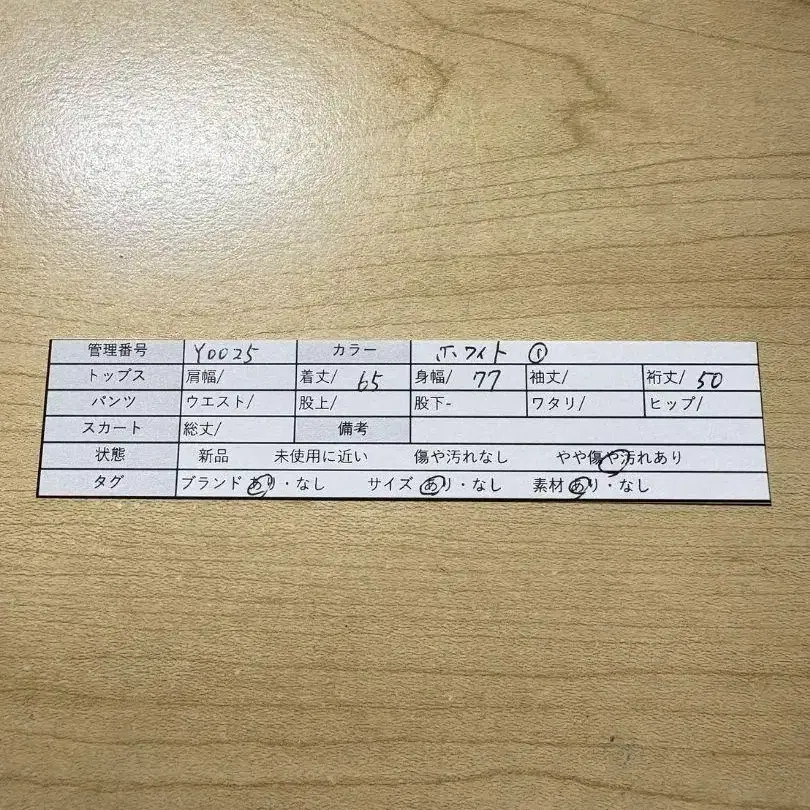 管理番号 Y0025 カラー ホワイト ①
トップス 肩幅/ 着丈/ 65 身幅/ 77 袖丈/ 裄丈/ 50
パンツ ウエスト/ 股上/ 股下- ワタリ/ ヒップ/
スカート 総丈/ 備考
状態 新品 未使用に近い 傷や汚れなし やや傷や汚れあり
タグ ブランドあり・なし サイズあり・なし 素材あり・なし